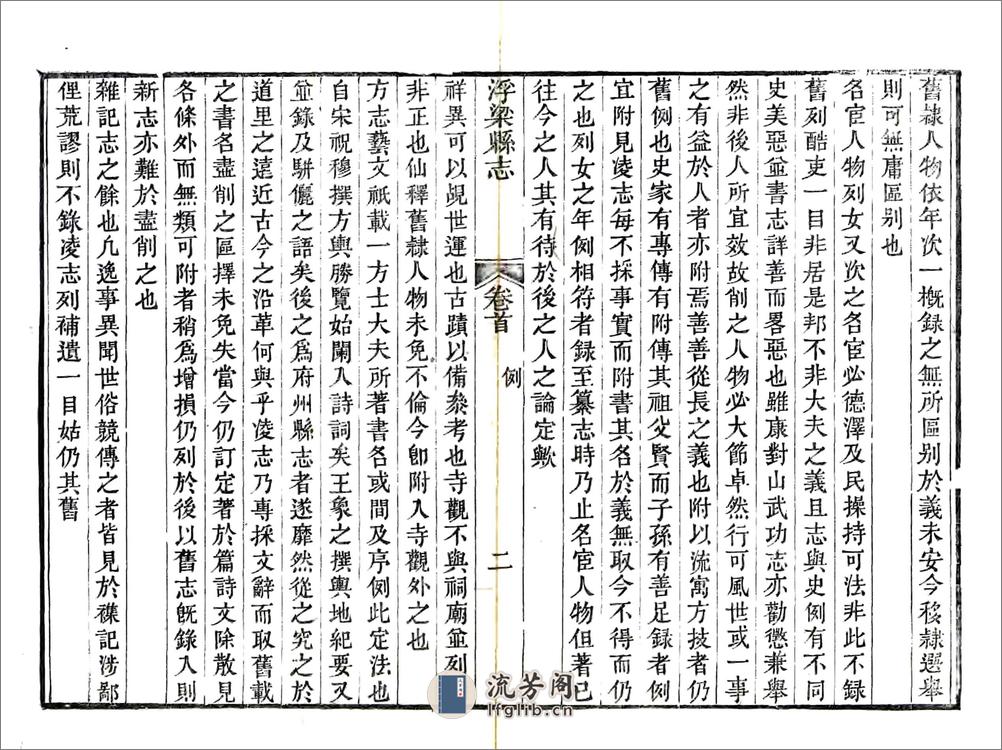 舊隸人物依年次一槪録之無所區别於義未安今移隸選舉
則可無庸區别也
名宦人物列女又次之名宦必德澤及民操持可法非此不録
舊列酷吏一目非居是邦不非大夫之義且志與史例有不同
史美惡並書志詳善而畧惡也雖康對山武功志亦勸懲兼舉
然非後人所宜效故削之人物必大節卓然行可風世或一事
之有益於人者亦附焉善善從長之義也附以流寓方技者仍
舊例也史家有專傳有附傳其祖父賢而子孫有善足録者例
宜附見凌志每不採事實而附書其名於義無取今不得而仍
之也列女之年例相符者録至纂志時乃止名宦人物但著已
往今之人其有待於後之人之論定歟
浮梁縣志
卷首
例
二
祥異可以覘世運也古蹟以備叅考也寺觀不與祠廟並列
非正也仙釋舊隸人物未免不倫今卽附入寺觀外之也
方志藝文祇載一方士大夫所著書名或間及序例此定法也
自宋祝穆撰方輿勝覽始闌入詩詞矣王象之撰輿地紀要又
並錄及駢儷之語矣後之爲府州縣志者遂靡然從之究之於
道里之遠近古今之沿革何與乎凌志乃專採文辭而取舊載
之書名盡削之區擇未免失當今仍訂定著於篇詩文除散見
各條外而無類可附者稍爲增損仍列於後以舊志旣錄入則
新志亦難於盡削之也
雜記志之餘也凢逸事異聞世俗競傳之者皆見於襍記涉鄙
俚荒謬則不錄凌志列補遺一目姑仍其舊
流芳阁
lfglib.cn